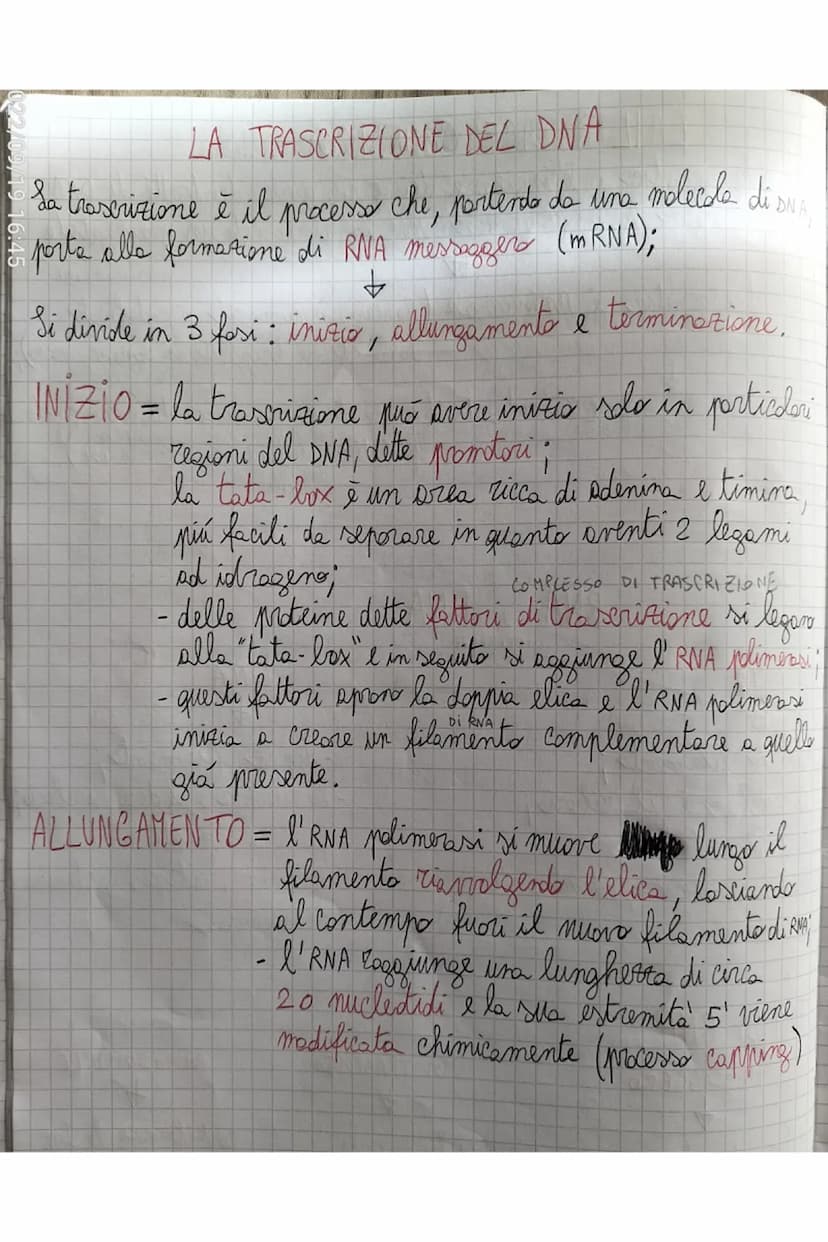 022/09/19 16:45
LA TRASCRIZIONE DEL DNA
La trascrizione è il processo che, partendo da una molecola di DNA,
porta alla formazione di RNA messaggero (mRNA);
↓
Si divide in 3 fasi: inizio, allungamento e terminazione.
INIZIO = la trascrizione puó avere inizio solo in particolari
regioni del DNA, dette promotori;
la tata-box è un area ricca di adenina e timina,
piú facili da separare in quanto aventi 2 legami
ad idrogeno;
COMPLESSO DI TRASCRIZIONE
- delle proteine dette fattori di trascrizione si legano
alla "tata-box" e in seguito si aggiunge l'RNA polimerasi;
- questi fattori aprono la doppia elica e l'RNA polimerasi
DI RNA
inizia a creare un filamento complementare a quello
giá presente.
ALLUNGAMENTO = l'RNA polimerasi si muove lungo il
filamento riavvolgendo l'elica, lasciando
al contempo fuori il nuovo filamento di RNA;
- l'RNA raggiunge una lunghezza di circa
20 nucleotidi e la sua estremità 5' viene
modificata chimicamente (processo capping)